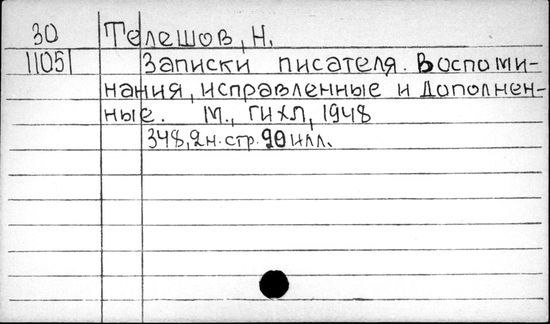 30 Телешов, Н.
11051 Записки писателя. Воспоми-
нания, исправленные и дополнен-
ные. М., ГИХЛ, 1948
348, 2 н. стр. 20 илл.